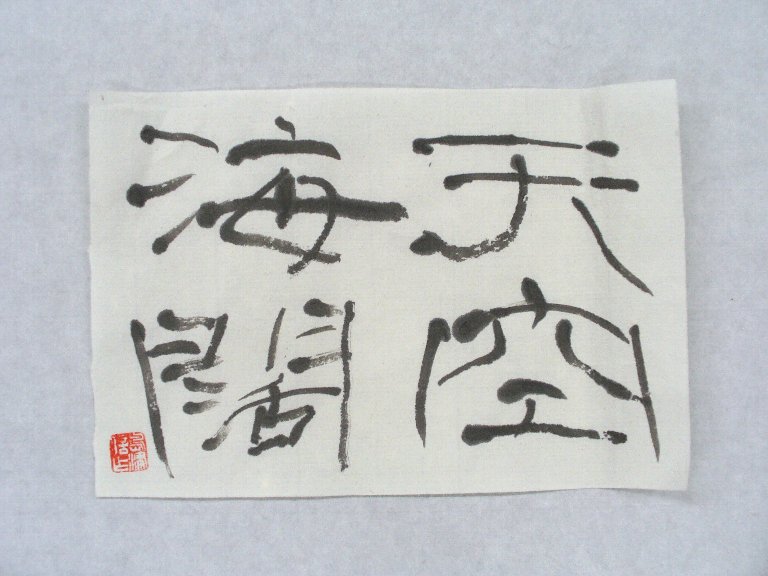 天空
海闊